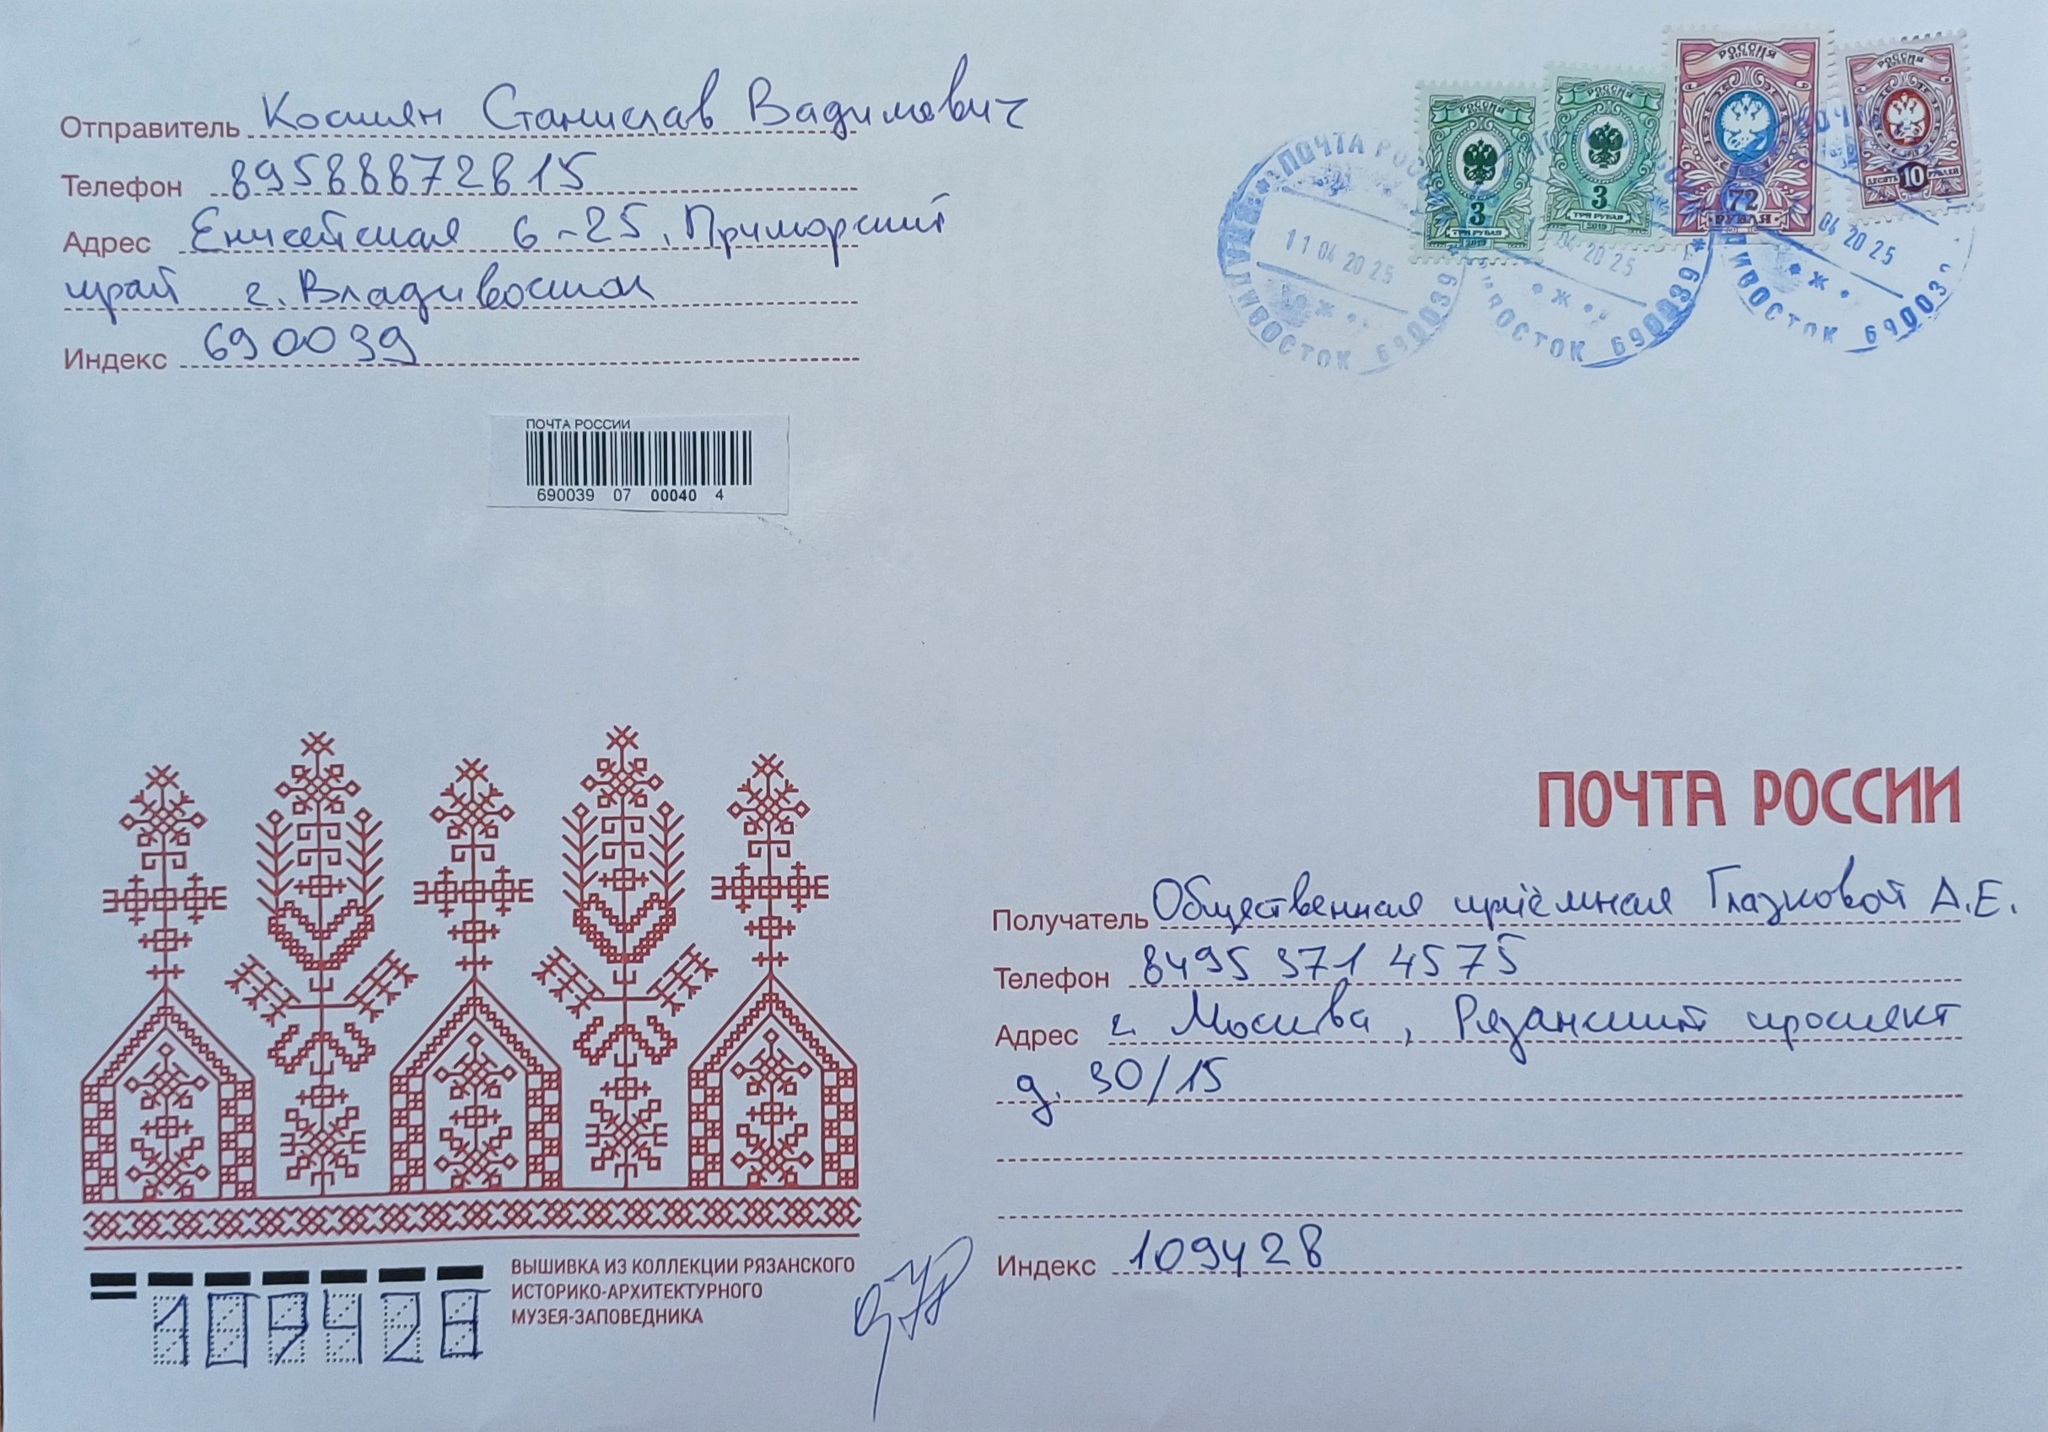 Отправитель Космян Станислав Вадимович
Телефон 89588872815
Адрес Енисейская 6-25, Приморский
край г. Владивосток
Индекс 690039
РОССИЯ
3
ТРИ РУБЛЯ
2019
РОССИЯ
3
ТРИ РУБЛЯ
2019
РОССИЯ
72
РУБЛЯ
РОССИЯ
ДЕСЯТЬ 10 РУБЛЕЙ
ПОЧТА РОССИИ
11 04 2025
ВЛАДИВОСТОК 690039
04 2025
ВОСТОК 690039
04 2025
ДИВОСТОК 69003
ПОЧТА РОССИИ
690039 07 00040 4
ПОЧТА РОССИИ
Получатель Общественная приёмная Глазковой А.Е.
Телефон 8495 371 4575
Адрес г. Москва, Рязанский проспект
д. 30/15
Индекс 109428
ВЫШИВКА ИЗ КОЛЛЕКЦИИ РЯЗАНСКОГО
ИСТОРИКО-АРХИТЕКТУРНОГО
МУЗЕЯ-ЗАПОВЕДНИКА
109428